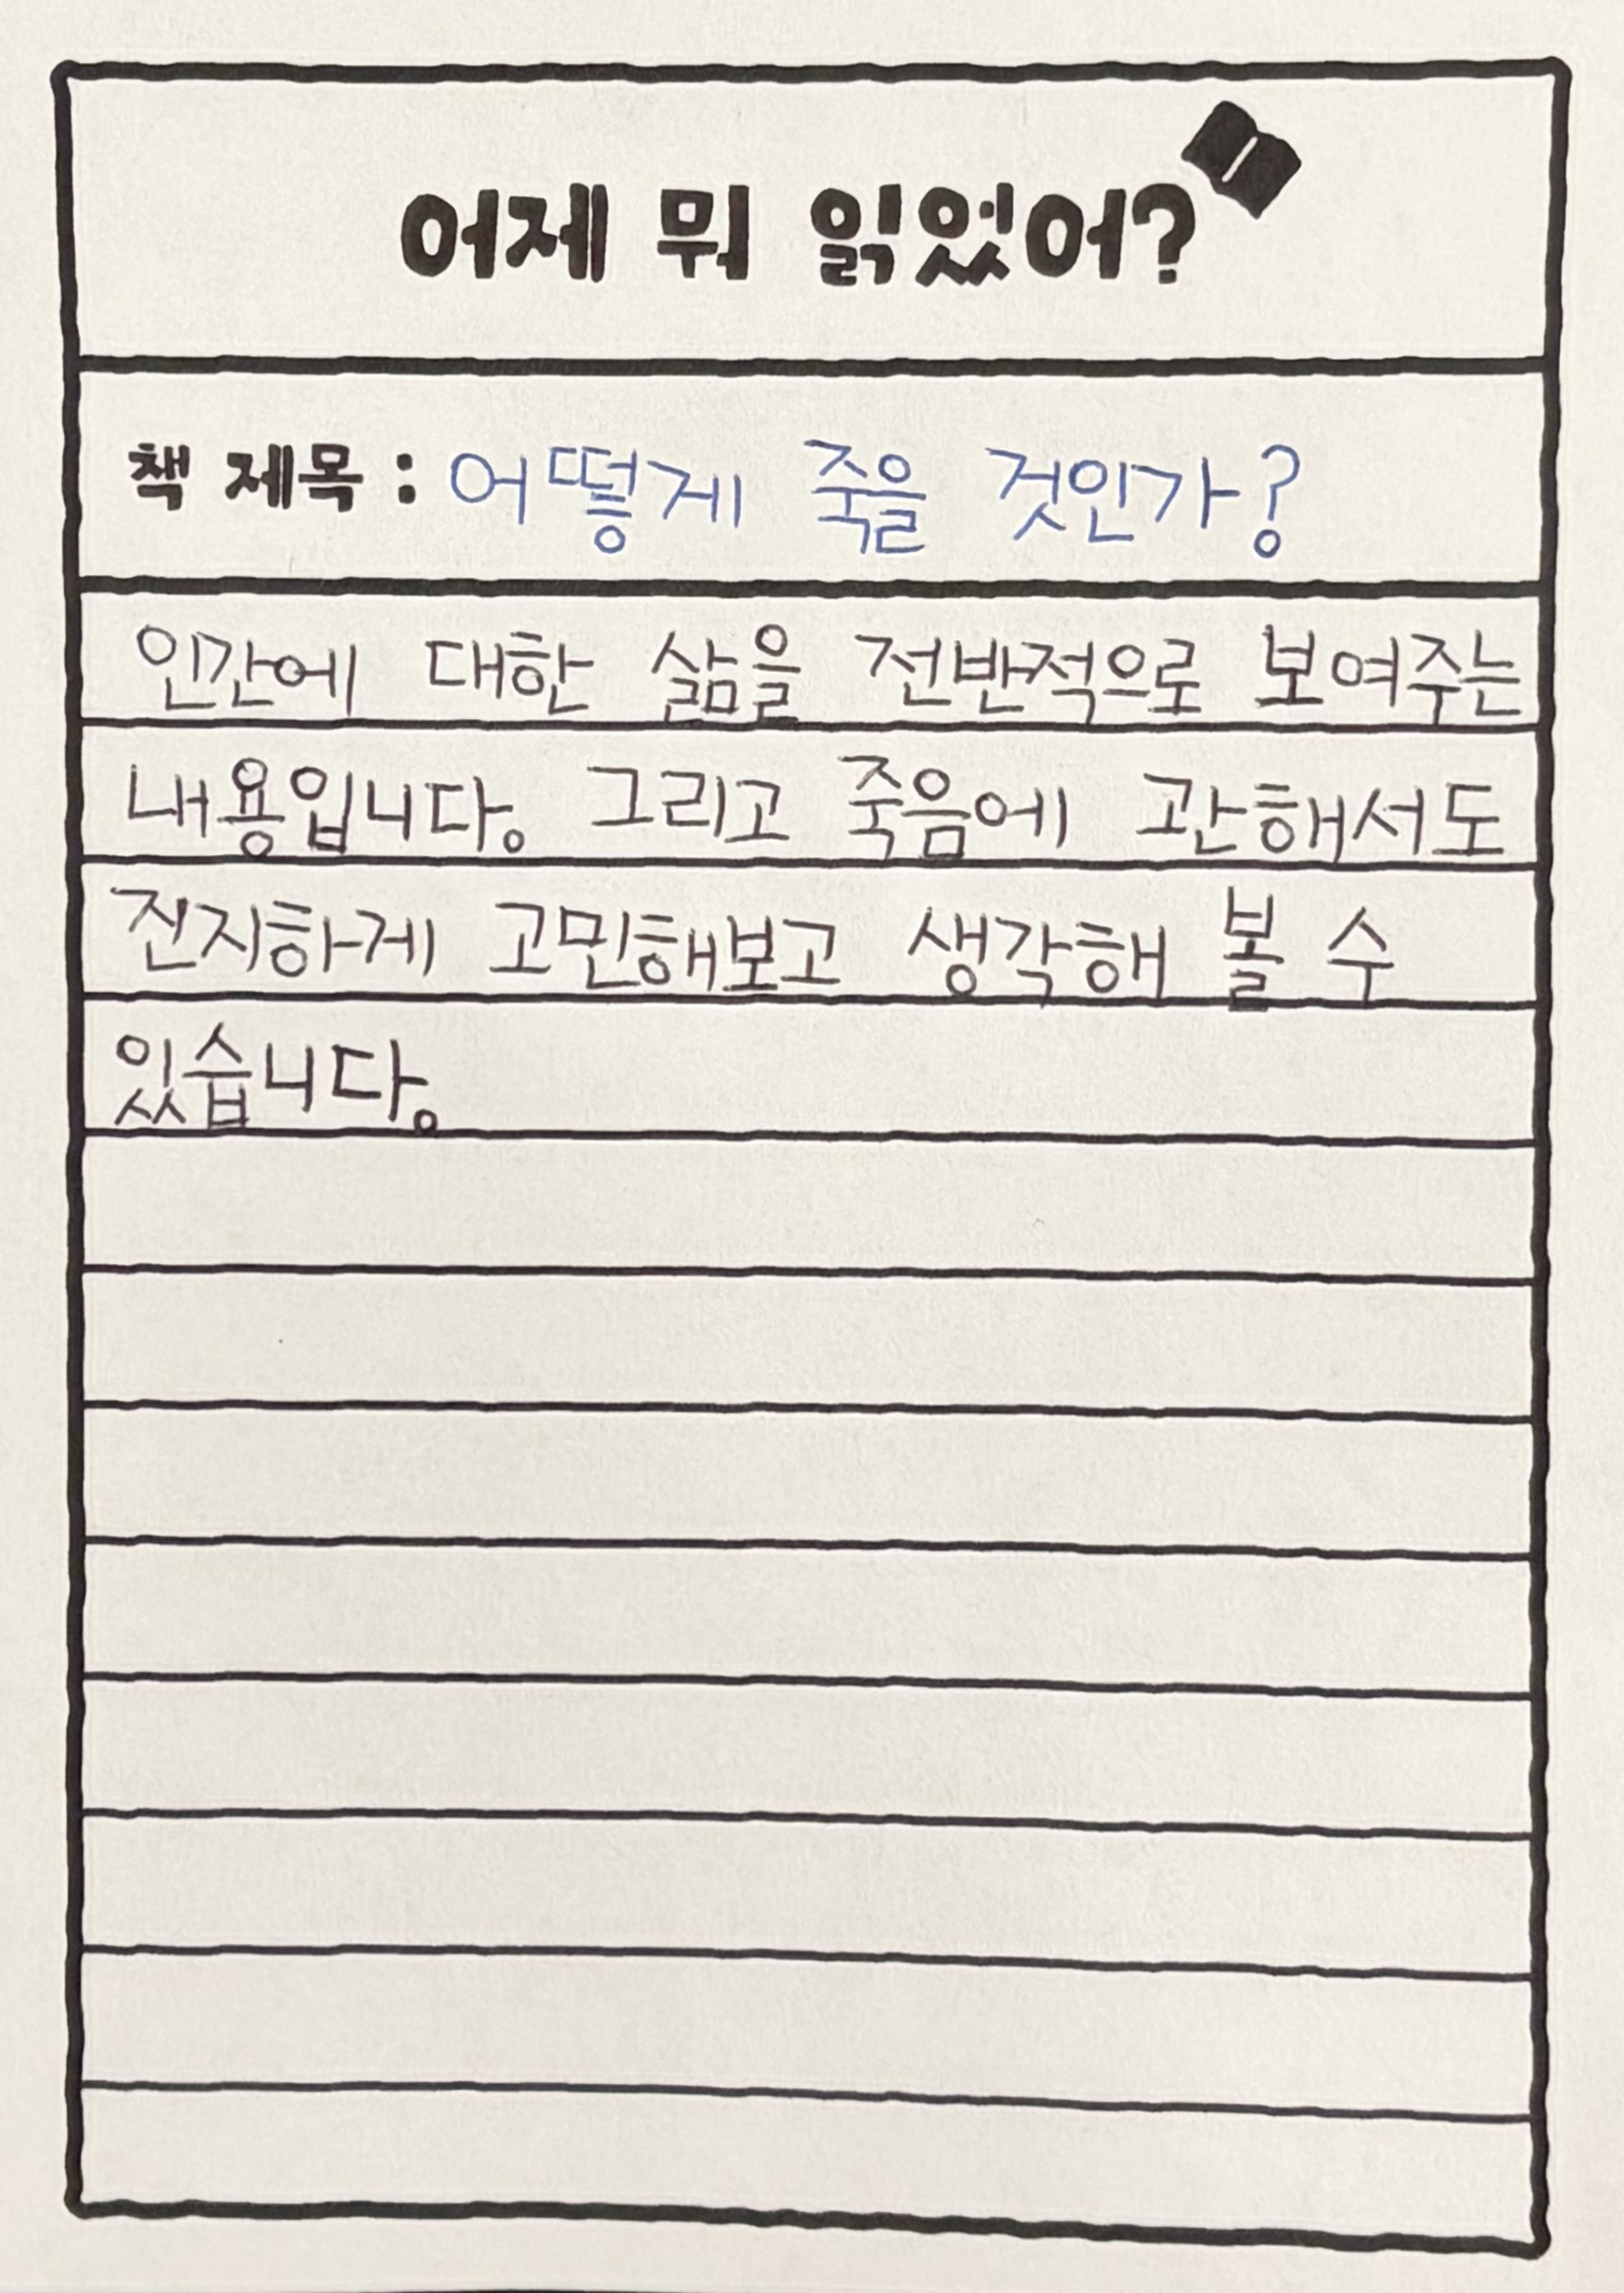 어제 뭐 읽었어?
책 제목 : 어떻게 죽을 것인가?
인간에 대한 삶을 전반적으로 보여주는
내용입니다. 그리고 죽음에 관해서도
진지하게 고민해보고 생각해 볼 수
있습니다.